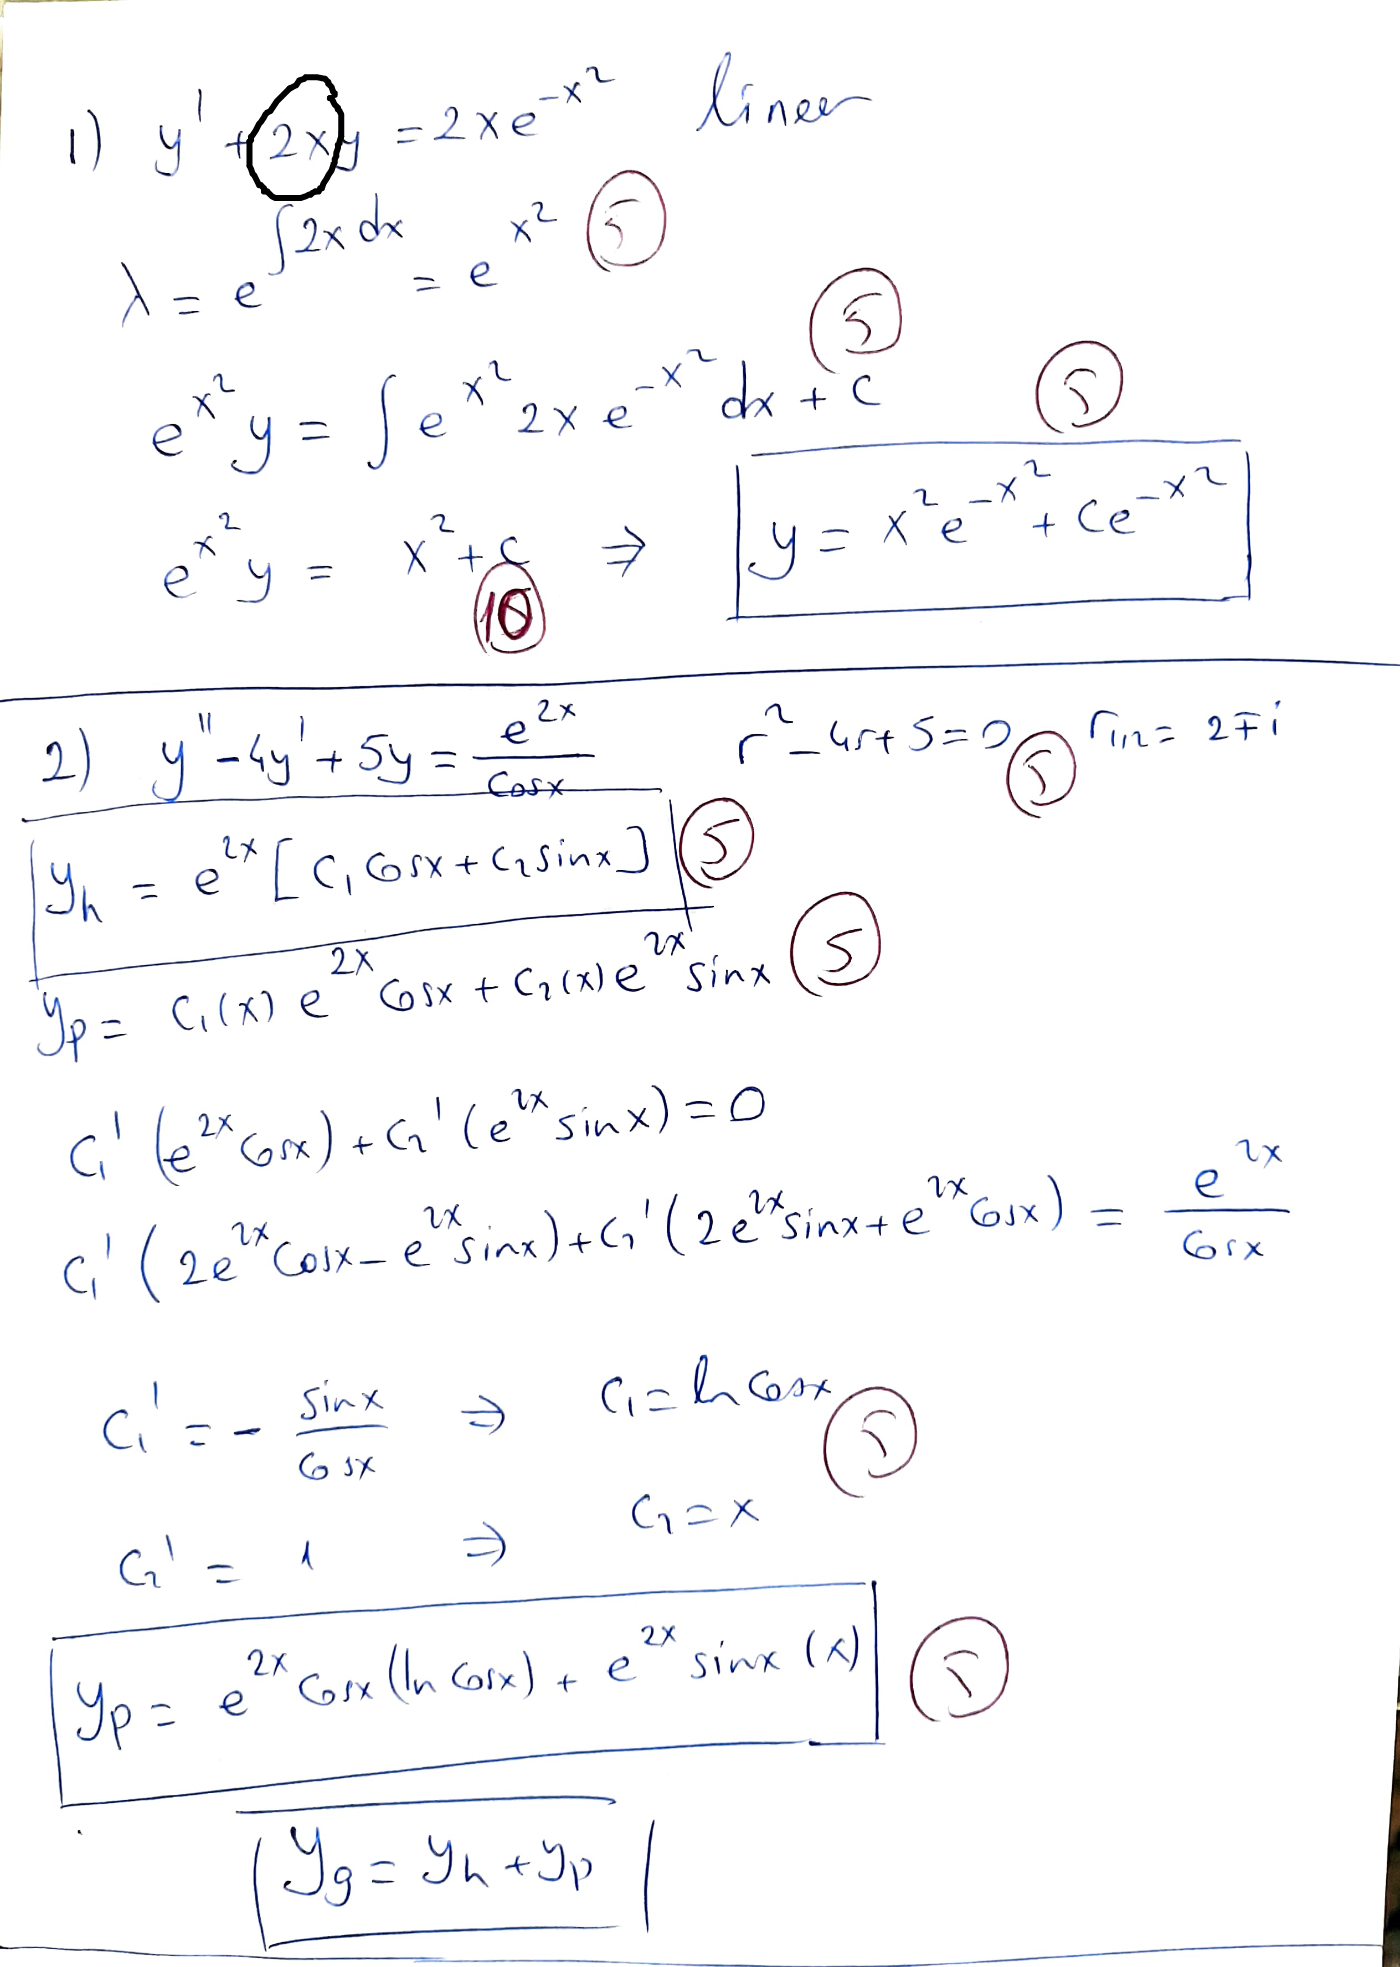 1) y' + 2xy = 2xe^{-x^2} lineer
λ = e^{∫2x dx} = e^{x^2} (5)
e^{x^2} y = ∫ e^{x^2} 2x e^{-x^2} dx + C (5)
e^{x^2} y = x^2 + C (10) ⇒ y = x^2 e^{-x^2} + Ce^{-x^2} (5)
2) y'' - 4y' + 5y = e^{2x}/Cosx r^2 - 4r + 5 = 0 (5) r_{1,2} = 2 ∓ i
y_h = e^{2x} [C_1 Cosx + C_2 sinx] (5)
y_p = C_1(x) e^{2x} Cosx + C_2(x) e^{2x} sinx (5)
C_1' (e^{2x} Cosx) + C_2' (e^{2x} sinx) = 0
C_1' (2e^{2x} Cosx - e^{2x} sinx) + C_2' (2e^{2x} sinx + e^{2x} Cosx) = e^{2x}/Cosx
C_1' = - sinx/Cosx ⇒ C_1 = ln Cosx (5)
C_2' = 1 ⇒ C_2 = x
y_p = e^{2x} Cosx (ln Cosx) + e^{2x} sinx (x) (5)
y_g = y_h + y_p